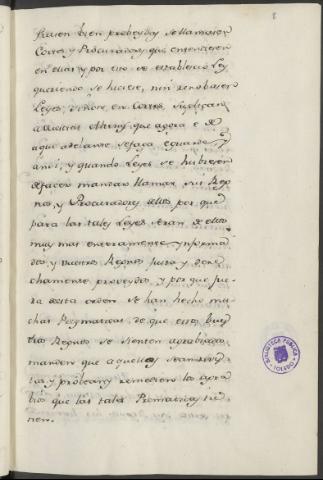 fuesen bien proveydas se llamasen
Cortes, y Procuradores que entendiesen
en ellas, y por esto se establecio Ley
que no se hiciese, nin renobasen
Leyes, sino en Cortes. Suplican
a Vuestras Altezas, que agora e de
aqui adelante se faga e guarde
ansi, y quando Leyes se hubieren
de facer, mandar llamar sus Rey
nos, y Procuradores dellos por que
para las tales Leyes seran de ellos
muy mas enteramente ynforma
dos, y vuestros Reynos justa y dere
chamente proveydos, y por que fue
ra desta orden se han hecho mu
chas Pregmaticas, de que estos vues
tros Reynos se sienten agrabiados,
manden que aquellas sean revis
tas, y probean, y remedien los agra
bios que las tales Prematicas tie
nen.
BIBLIOTECA PUBLICA
TOLEDO